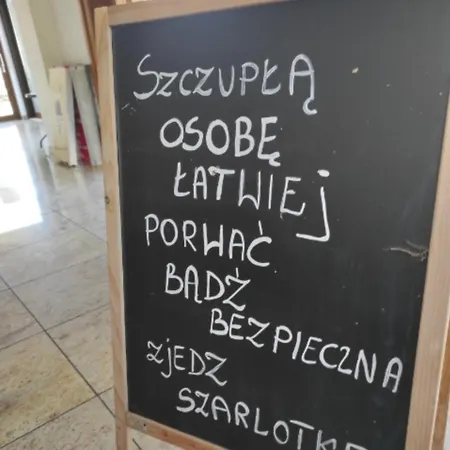 SZCZUPŁĄ
OSOBĘ
ŁATWIEJ
PORWAĆ
BĄDŹ
BEZPIECZNA
ZJEDZ
SZARLOTKĘ